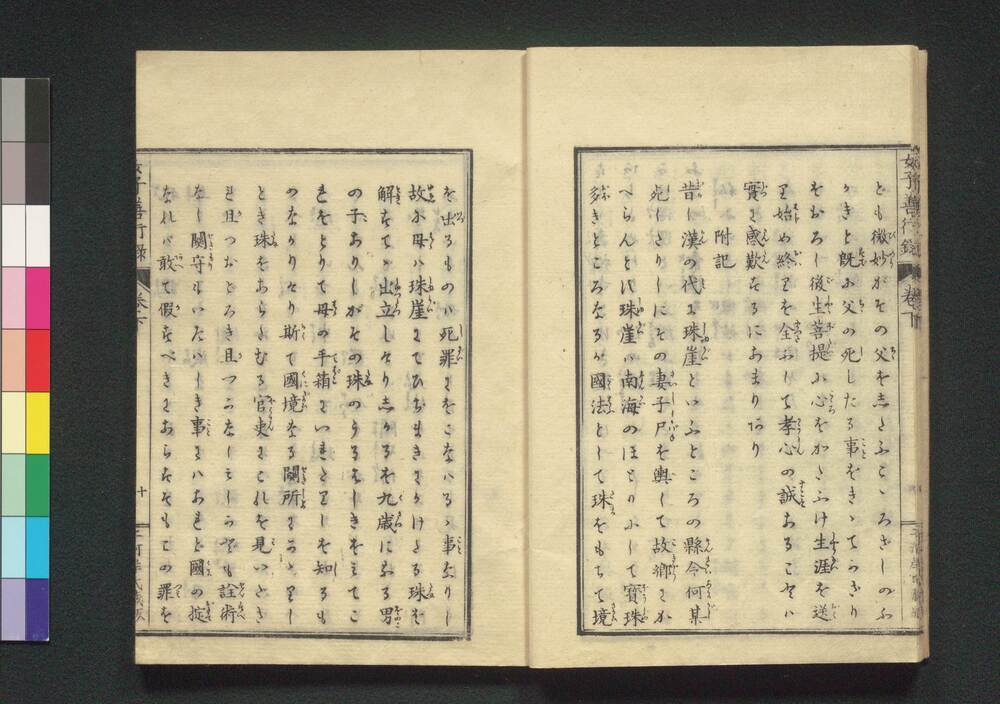 とも微妙がその父をしたふこゝろざしのふ
かきと既に父の死したる事をきゝてうきり
をおろし後生菩提に心をかたふけ生涯を送
り始め終りを全ふして孝心の誠あることハ
實に感歎するにあまりあり
附記
昔し漢の代に珠崖といふところの縣令何某
死しさりしにその妻子尸を輿して故郷にか
へらんとに珠崖ハ南海のほとりにして寳珠
多きところなるが國法として珠をもちて境
を出るものハ死罪にをこなハるゝ事なりし
故に母ハ珠崖までひぢまきにかけたる珠を
解すてゝ出立しせりしかるを九歳になる男
の子ありしがその珠のうるはしきをミてこ
れをとりて母の手箱にいれたりしを知るも
のなかりせり斯て國境なる關所にかゝりし
とき珠をあらためる官吏にこれを見いとき
れ且つおどろき且つかなしミしかども詮術
なし關守もいたハしき事にハあれど國の掟
なれバ敢て假すべきにあらずそもこの罪を
孝子善行録
卷下
十